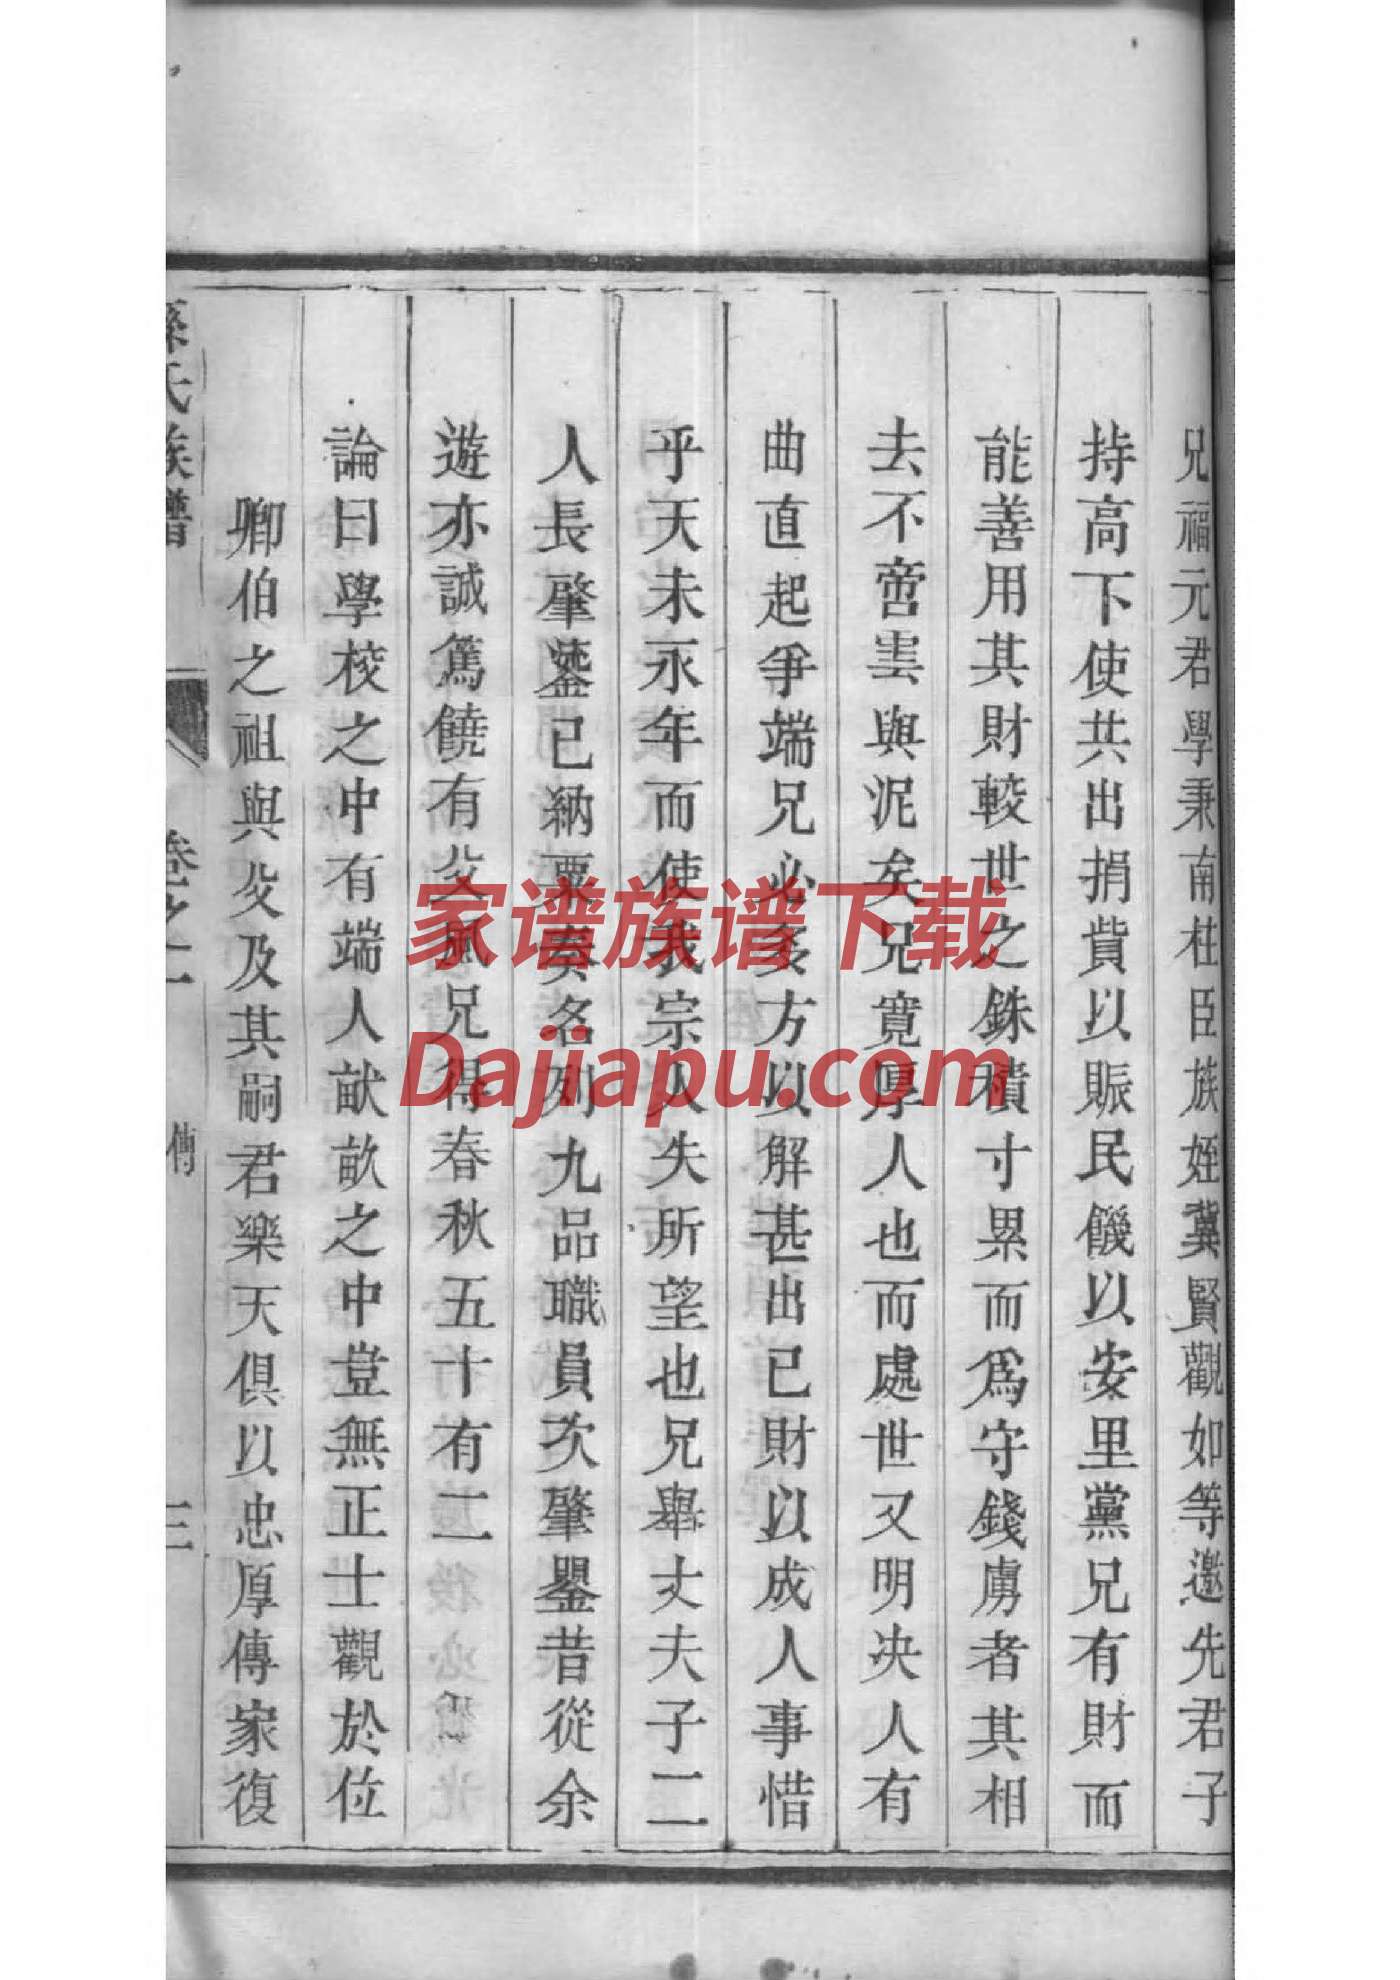 兄福元君學秉南柱臣族姪冀賢觀如等邀先君子
持高下使共出捐貲以賑民饑以安里黨兄有財而
能善用其財較世之銖積寸累而為守錢虜者其相
去不啻雲與泥矣兄寬厚人也而處世又明决人有
曲直起爭端兄必多方以解甚出已財以成人事惜
乎天未永年而使我宗人失所望也兄舉丈夫子二
人長肇鎣已納粟奏名列九品職員次肇罌昔從余
遊亦誠篤饒有父風兄得春秋五十有二
論曰學校之中有端人畎畝之中豈無正士觀於位
卿伯之祖與父及其嗣君樂天俱以忠厚傳家復
孫氏族譜 卷之一 傳 三
家谱族谱下载
Dajiapu.com